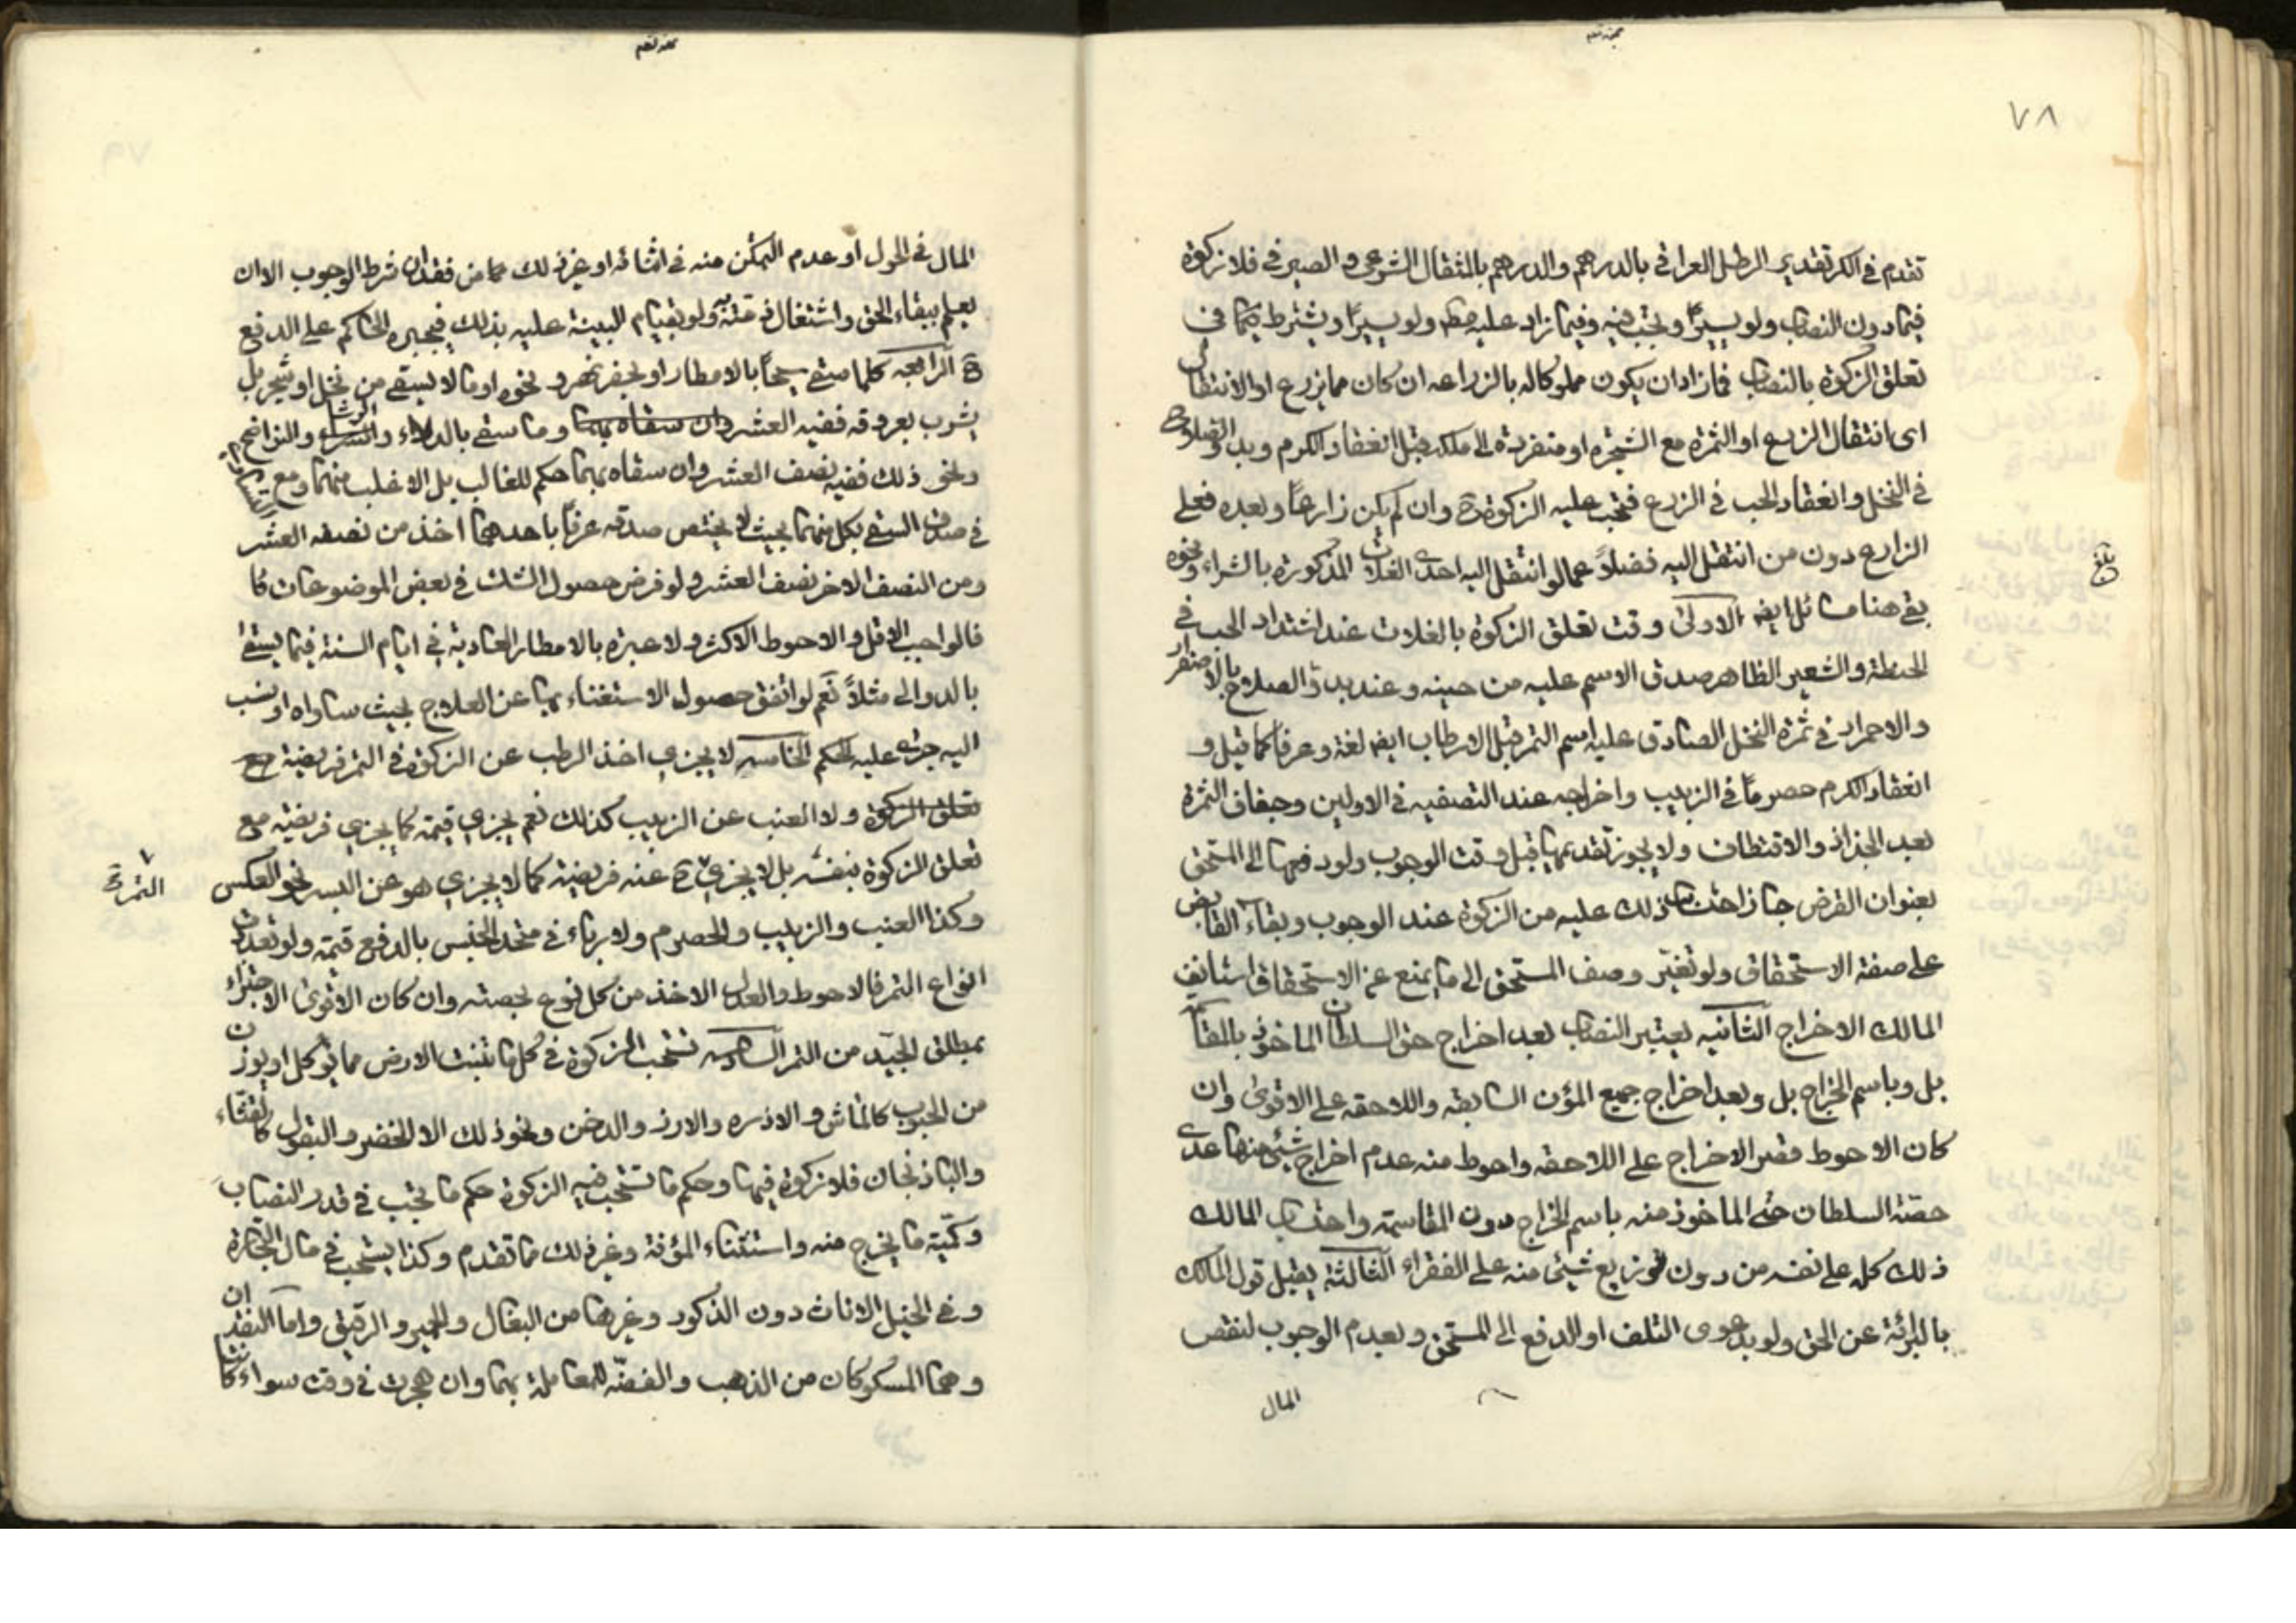 ٧٨
تقدم في الكر تقدير الرطل العراقي بالدرهم والدرهم بالمثقال الشرعي والصيرفي فلا زكوة
فيما دون النصاب ولو يسيرًا وتجب فيه وفيما زاد عليه ولو يسيرًا ويشترط في
تعلق الزكوة بالنصاب فما زاد ان يكون مملوكا له بالزراعه ان كان مما يزرع او الانتقال
اى انتقال الزرع او الثمرة مع الشجرة او منفردة الى ملكه قبل انعقاد الكرم وبدو الصلاح
في النخل وانعقاد الحب في الزرع فتجب عليه الزكوة ح وان لم يكن زارعًا وبعده فعلى
الزارع دون من انتقل اليه فضلاً عما لو انتقل اليه احدى الغلات المذكورة بالشراء ونحوه
بقى هنا مسائل ايضا الاولى وقت تعلق الزكوة بالغلات عند اشتداد الحب في
الحنطة والشعير الظاهر صدق الاسم عليه من حينه وعند بدو الصلاح بالاصفرار
والاحمرار في ثمرة النخل الصادق عليه اسم التمر قبل الارطاب ايضا لغة وعرفا كما قيل و
انعقاد الكرم حصرمًا في الزبيب واخراجه عند التصفيه في الاولين وجفاف الثمرة
بعد الجذاذ والاقتطاف ولا يجوز تقديمها قبل وقت الوجوب ولو دفعها الى المستحق
بعنوان القرض جاز احتساب ذلك عليه من الزكوة عند الوجوب وبقاء القابض
على صفة الاستحقاق ولو تغير وصف المستحق الى ما يمنع عن الاستحقاق استانف
المالك الاخراج الثانيه يعتبر النصاب بعد اخراج حق السلطان الماخوذ بالمقا
بل وباسم الخراج بل وبعد اخراج جميع المؤن السابقه واللاحقه على الاقوى وان
كان الاحوط قصر الاخراج على اللاحقه واحوط منه عدم اخراج شيئ منها عدى
حصة السلطان حتى الماخوذ منه باسم الخراج دون المقاسمة واحتساب المالك
ذلك كله على نفسه من دون توزيع شيئ منه على الفقراء الثالثة يقبل قول المالك
بالبرائة عن الحق ولو بدعوى التلف او الدفع الى المستحق وبعدم الوجوب لنقص
المال
المال في الحول او عدم التمكن منه في اثنائه او غير ذلك مما من فقدان شرط الوجوب الا ان
يعلم ببقاء الحق واشتغال ذمته به ولو بقيام البينة عليه بذلك فيجبره الحاكم على الدفع
ح الرابعه كلما سقى سيحًا بالامطار او بحفر نهر ونحوه او ما لا يسقى من نخل او شجر بل
يشرب بعروقه ففيه العشر وان سقاه بهما وما سقى بالدلاء والرشا والنواضح
ونحو ذلك ففيه نصف العشر وان سقاه بهما حكم للغالب بل الاغلب منهما ومع
في صدق السقى بكل منهما بحيث لا يختص صدقه عرفًا باحدهما اخذ من نصفه العشر
ومن النصف الاخر نصف العشر ولو فرض حصول الشك في بعض الموضوعات كا
فالواجب الاقل والاحوط الاكثر ولا عبرة بالامطار العادية في ايام السنة فيما يسقى
بالدوالى مثلاً نعم لو اتفق حصول الاستغناء بها عن العلاج بحيث ساواه او نسب
اليه جرى عليه الحكم الخامسه لا يجزي اخذ الرطب عن الزكوة في التمر فريضة مع
تعلق الزكوة ولا العنب عن الزبيب كذلك نعم يجزي قيمة كما يجزي فريضه مع
تعلق الزكوة بنفسه بل لا يجزي ح عنه فريضة كما لا يجزي هو عن البسر نحو العكس
الثمرة
وكذا العنب والزبيب والحصرم ولا برباء في متحد الجنس بالدفع قيمة ولو تعددت
انواع التمر فالاحوط والعدل الاخذ من كل نوع بحصته وان كان الاقوى الاجتزاء
بمطلق الجيّد من التمر السادسه تستحب الزكوة في كل ما تنبت الارض مما يؤكل او يوزن
من الحبوب كالماش والاذره والارز والدخن ونحو ذلك الا الخضر والبقول كالقثاء
والباذنجان فلا زكوة فيها وحكم ما تستحب فيه الزكوة حكم ما تجب في قدر النصاب
وكميّة ما يخرج منه واستثناء المؤنة وغير ذلك مما تقدم وكذا يستحب في مال التجارة
وفي الخيل الاناث دون الذكور وغيرها من البغال والحمير والرقيق واما النقدان
وهما المسكوكان من الذهب والفضّه للمعاملة بهما وان هجرت في وقت سواء كانتا